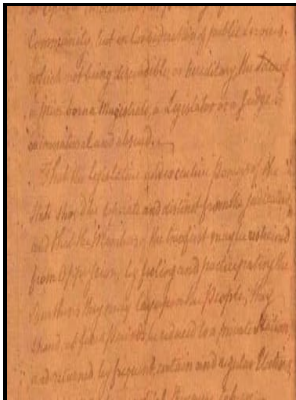 Community, but in Consideration of public Services
which not being descendible or hereditary, the Idea of
a Man born a Magistrate, a Legislator or a Judge is
unnatural and absurd.
That the legislative and executive Powers of the
State should be separate and distinct from the judicative
and that the Members of the two first may be restrained
from Oppression, by feeling and participating the
Burthens they may lay upon the People, they
should, at fixed Periods be reduced to a private Station
and returned by frequent, certain and regular Elections